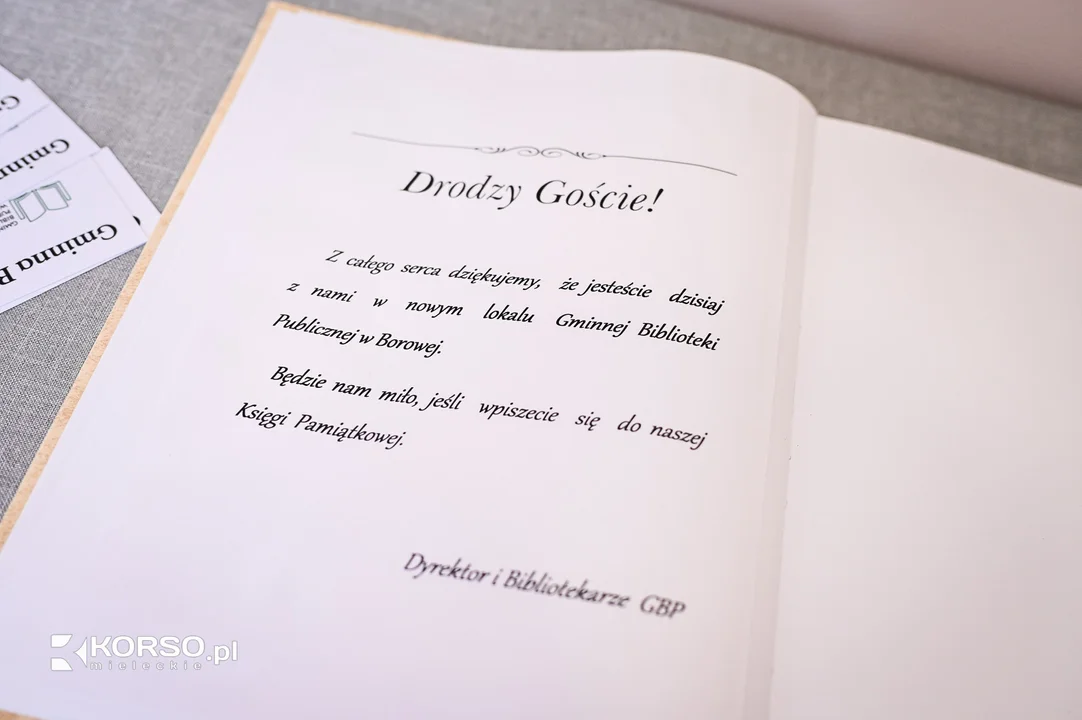 Drodzy Goście!
Z całego serca dziękujemy, że jesteście dzisiaj
z nami w nowym lokalu Gminnej Biblioteki
Publicznej w Borowej.
Będzie nam miło, jeśli wpiszecie się do naszej
Księgi Pamiątkowej.
Dyrektor i Bibliotekarze GBP
Gminna B
KORSO.pl
mieleckie